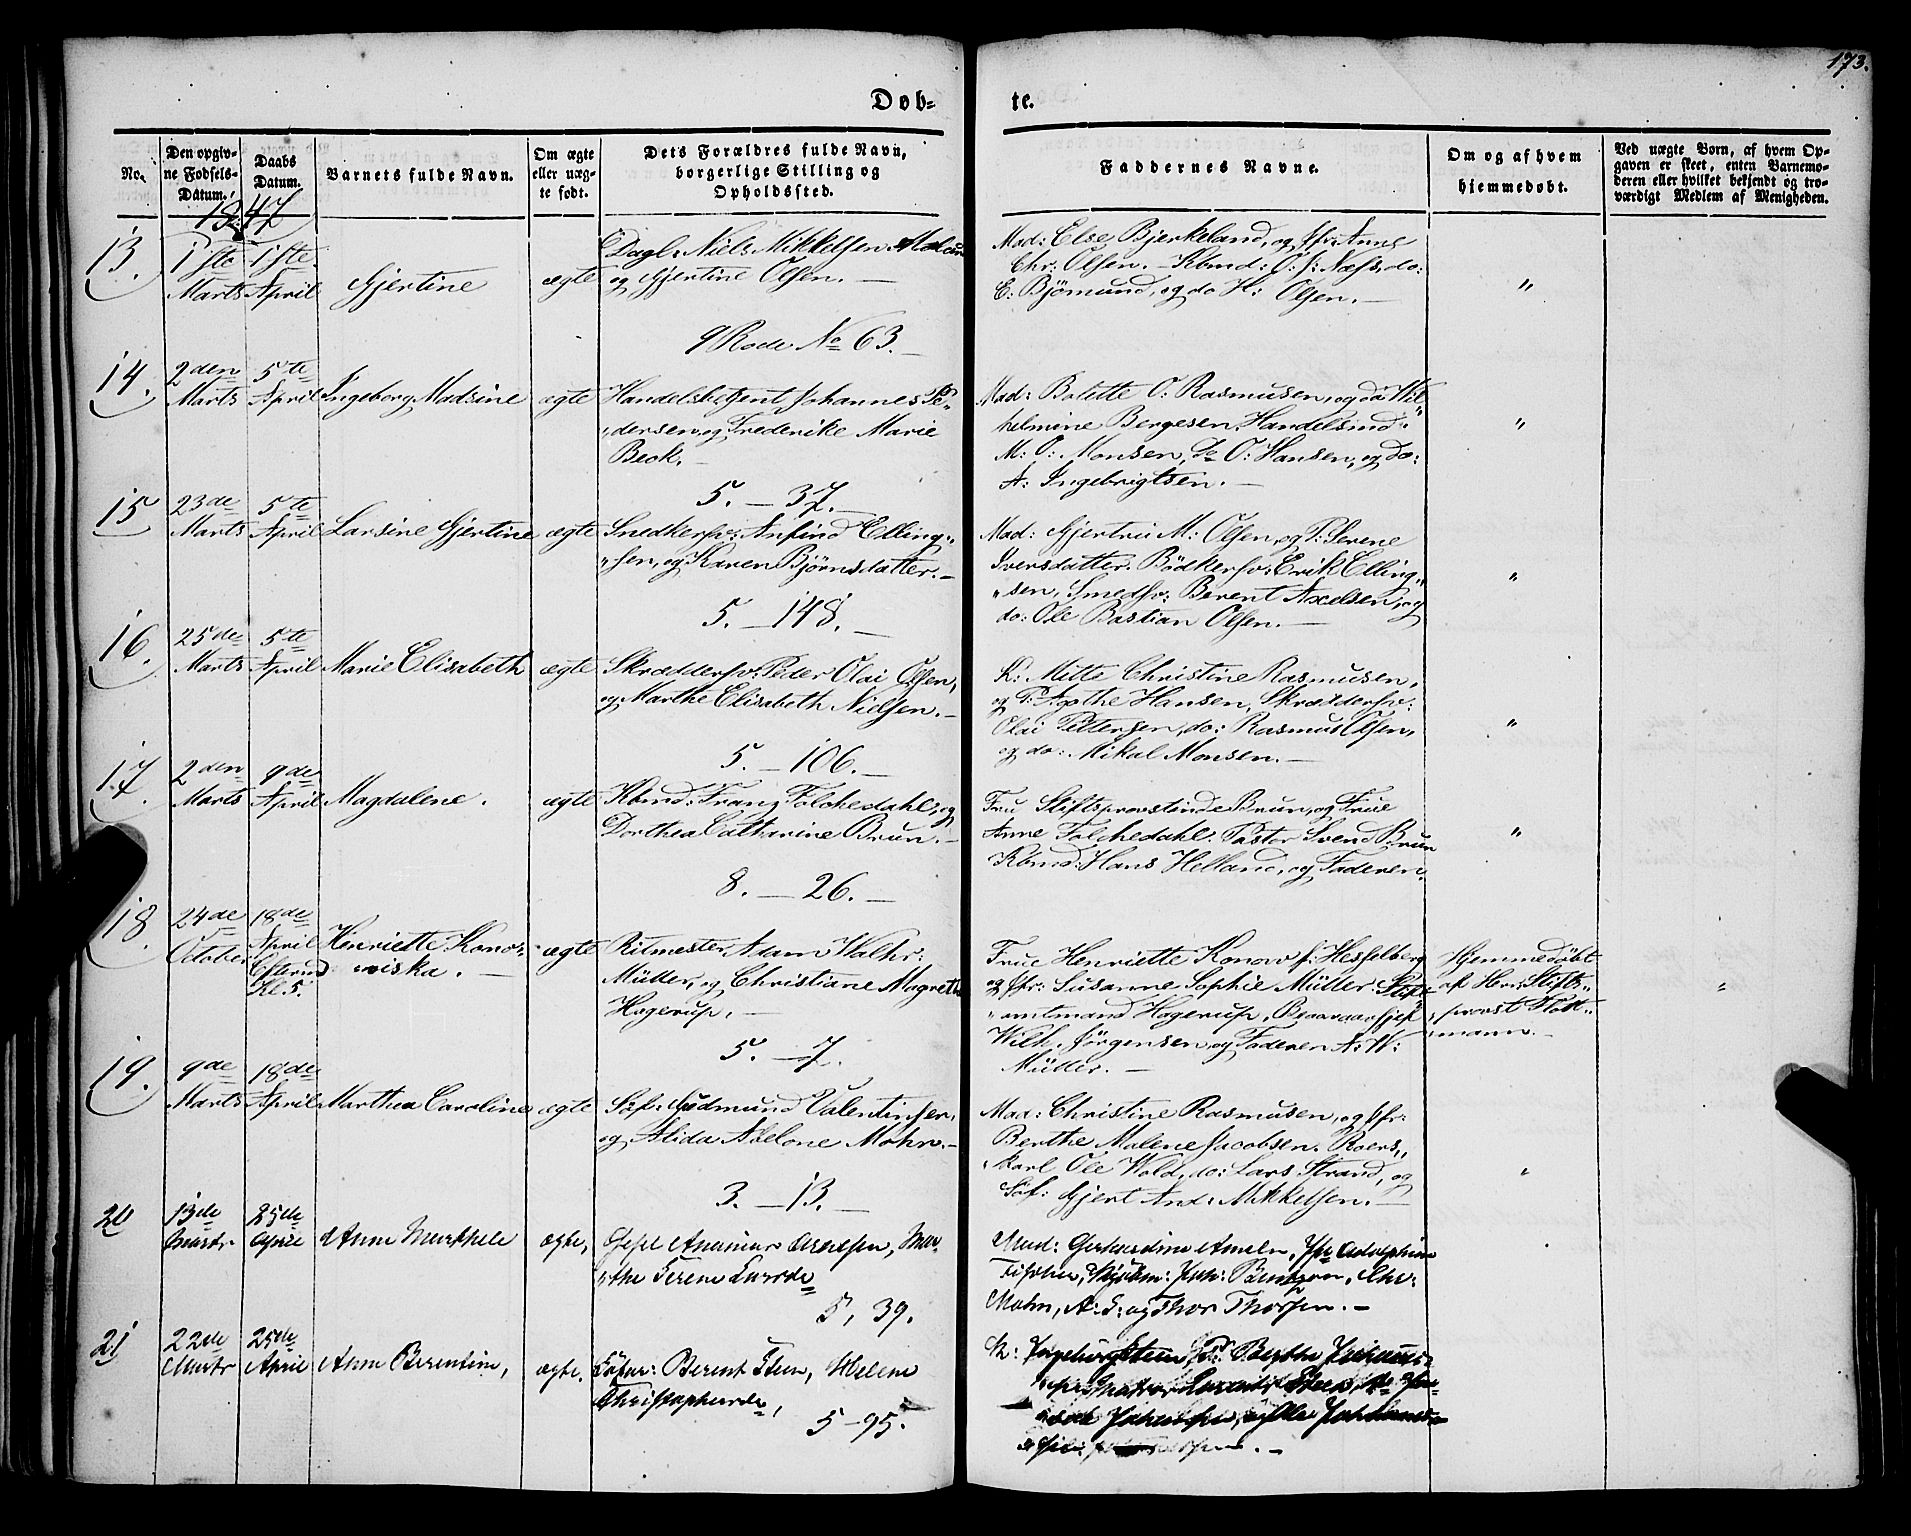 173.
Døb-
te.
No.
Den opgiv-
ne Fødsels-
Datum.
Daabs
Datum.
Barnets fulde Navn.
Om ægte
eller uæg-
te født.
Dets Forældres fulde Navn,
borgerlige Stilling og
Opholdssted.
Faddernes Navne.
Om og af hvem
hjemmedøbt.
Ved uægte Born, af hvem Op-
gaven er skeet, enten Barnemo-
deren eller hvilket bekjendt og tro-
værdigt Medlem af Menigheden.
1847
13.
1ste
Marts
1ste
April
Gjertine
ægte
Dagl: Niels Mikkelsen
og Gjertine Olsen. —
9 Rode No 63. —
Mad: Else Bjerkeland, og Jfr: Anne
Chr: Olsen. — Kbmd: O: J: Næss, do:
E: Bjömund, og do H: Olsen. —
"
14.
2den
Marts
5te
April
Ingeborg Madsine
ægte
Handelsbetjent Johannes Pe-
"dersen, og Frederike Marie
Beck. —
5. — 37. —
Mad: Bolette O: Rasmusen, og do: Wil-
helmine Bergesen, Handelsmd:
M: O: Monsen, do O: Hansen, og do:
A: Ingebrigtsen. —
"
15
23de
Marts
5te
April
Larsine Gjertine
ægte
Snedkersv: Anfind Elling-
"sen, og Karen Bjørnsdatter. —
5. — 148. —
Mad: Gjertrui M: Olsen, og P: Serene
Iversdatter. Bödkersv: Erik Elling-
"sen, Smedsv: Berent Axelsen, og
do: Ole Bastian Olsen. —
"
16.
25de
Marts
5te
April
Marie Elisabeth
ægte
Skræddersv: Peder Olai Olsen,
og Marthe Elisabeth Nielsen. —
5. — 106. —
K: Mitte Christine Rasmusen,
og P: Agothe Hansen, Skræddersv:
Olai Pettersen, do: Rasmus Olsen,
og do: Mikal Monsen. —
"
17.
2den
Marts
9de
April
Magdalene.
ægte
Kbmd: Franz Folchedahl, og
Dorthea Catharine Brun. —
8. — 26. —
Fru Stiftsprovstinde Brun, og Frue
Anne Folchedahl. Pastor Svend Brun
Kbmd: Hans Helland, og Faderen.
"
18.
24de
October
18de
April
Efterm
Kl. 5.
Henriette Kono-
wiska. —
ægte
Ritmester Adam Walhr:
Müller, og Christiane Magrethe
Hagerup. —
5. — 7.
Frue Henriette Konow f: Hesselberg
og Jfr: Susanne Sophie Müller. Stift-
"amtmand Hagerup,
Wilh. Jörgensen og Faderen A: W:
Müller. —
Hjemmedöbt
af Herr Stifts-
provst
mann. —
"
19.
9de
Marts
18de
April
Marthea Caroline
ægte
Söf: Gudmund Valentinsen,
og Alida Abelone Mohn. —
3. — 13. —
Mad: Christine Rasmusen, og Jfr:
Berthe Malene Jacobsen. Roers-
karl Ole Wold, do: Lars Strand, og
Söf: Gjert And: Mikkelsen. —
"
20
13de
Marts
25de
April
Anne
ægte,
Serene
5, 39.
Mad:
Mohn, A: S: og Thor Thorsen. —
21
22de
Marts
25de
April
Anne Berentine,
ægte.
Berent Steen, Helene
5 — 95.
K: Ingeborg Steen, P: Berthe